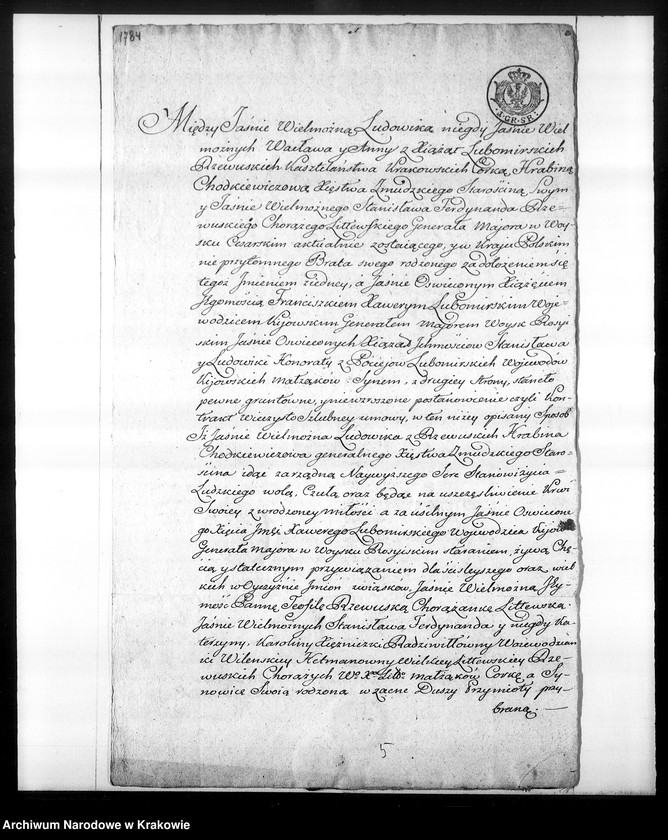 1784
4.GR.SR:
Między Jaśnie Wielmożną Ludowiką niegdy Jaśnie Wiel
możnych Wacława y Anny z Xiążąt Lubomirskich
Rzewuskich Kasztelaństwa Krakowskich Corką, Hrabiną
Chodkiewiczową Xięstwa Zmudzkiego Starościną, Swym
y Jaśnie Wielmożnego Stanisława Ferdynanda Rze=
wuskiego Chorążego Littewskiego Generała Majora w Woy=
sku Cesarskim aktualnie zostaiącego, y w Kraiu Polskim
nie przytomnego Brata swego rodzonego za dołożeniem się
tegoż Jmieniem ziedney, a Jaśnie Oswieconym Xiążęciem
Jegomością Franciszkiem Xawerym Lubomirskim Woje=
wodzicem Kijowskim Generałem Majorem Woysk Rosyi
skim Jaśnie Oswieconych Xiążąt Jchmościow Stanisława
y Ludowiki Honoraty z Pociejow Lubomirskich Wojewodow
Kijowskich małżąkow Synem, z drugiey strony, stanęło
pewne gruntowne, y niewzrożone postanowienie czyli Kon=
trakt Wieczysto Szlubney umowy, w ten niżey opisany Sposob
Jż Jaśnie Wielmożna Ludowika z Rzewuskich Hrabina
Chodkiewiczowa generalnego Xięstwa Zmudzkiego Staro=
ścina idąc za rządną Naywyższego Serc Stanowi życia =
Ludzkiego wolą, Czuła oraz będąc na uszczęśliwienie Krwi
Swoiey z wrodzoney miłości a za usilnym Jaśnie Oswiecone
go Xięcia Jmci Xawerego Lubomirskiego Wojewodzica Kijow
Generała Majora w Woysku Rosyiskim staraniem, żywą Chę=
cią y statecznym przywiązaniem dla ściśleyszego oraz wiel
kich w Oyczyznie Jmion związkow, Jaśnie Wielmożną Jey=
mość Pannę Teofilę Rzewuską Chorążankę Littewską
Jaśnie Wielmożnych Stanisława Ferdynanda y niegdy Ka=
terzyny, Karoliny Xiężniczki Radziwiłłowny Woiewodzian
ki Wilenskiey Hetmanowny Wielkiey Littewskiey Rze=
wuskich Chorążych Wo Xa Litto małżąkow Corkę a Sy=
nowicę Swoią rodzoną w zacne Duszy Przymioty przy=
braną: —
5
Archiwum Narodowe w Krakowie